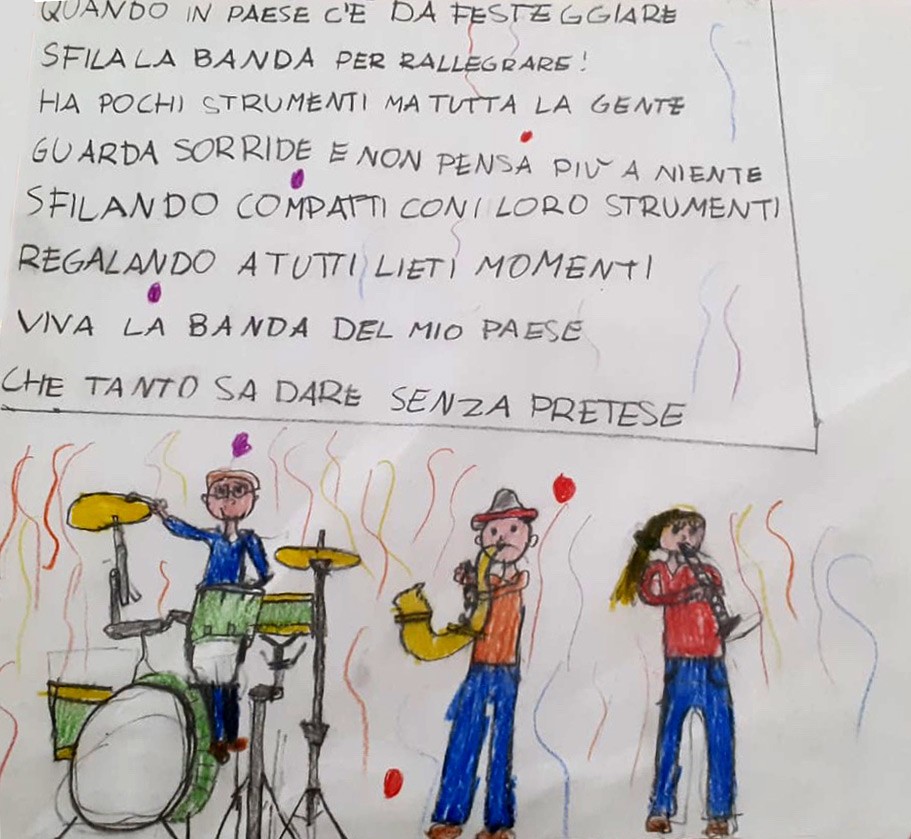 QUANDO IN PAESE C'È DA FESTEGGIARE
SFILA LA BANDA PER RALLEGRARE!
HA POCHI STRUMENTI MA TUTTA LA GENTE
GUARDA SORRIDE E NON PENSA PIÙ A NIENTE
SFILANDO COMPATTI CON I LORO STRUMENTI
REGALANDO A TUTTI LIETI MOMENTI
VIVA LA BANDA DEL MIO PAESE
CHE TANTO SA DARE SENZA PRETESE